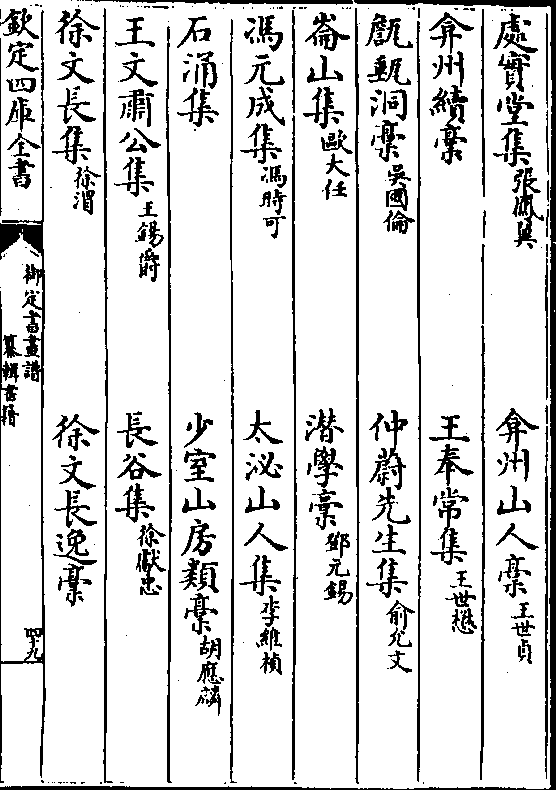 處實堂集張鳳翼 弇州山人稾王世貞
弇州續稾 王奉常集王世懋
甔甀洞稾吳國倫 仲蔚先生集俞允文
崙山集歐大任 潜學稾鄧元錫
馮元成集馮時可 太泌山人集李維楨
石涌集 少室山房類稾胡應麟
王文肅公集王錫爵 長谷集徐獻忠
徐文長集徐渭 徐文長逸稾
欽定四庫全書 御定書畫譜 纂輯書籍 四十九